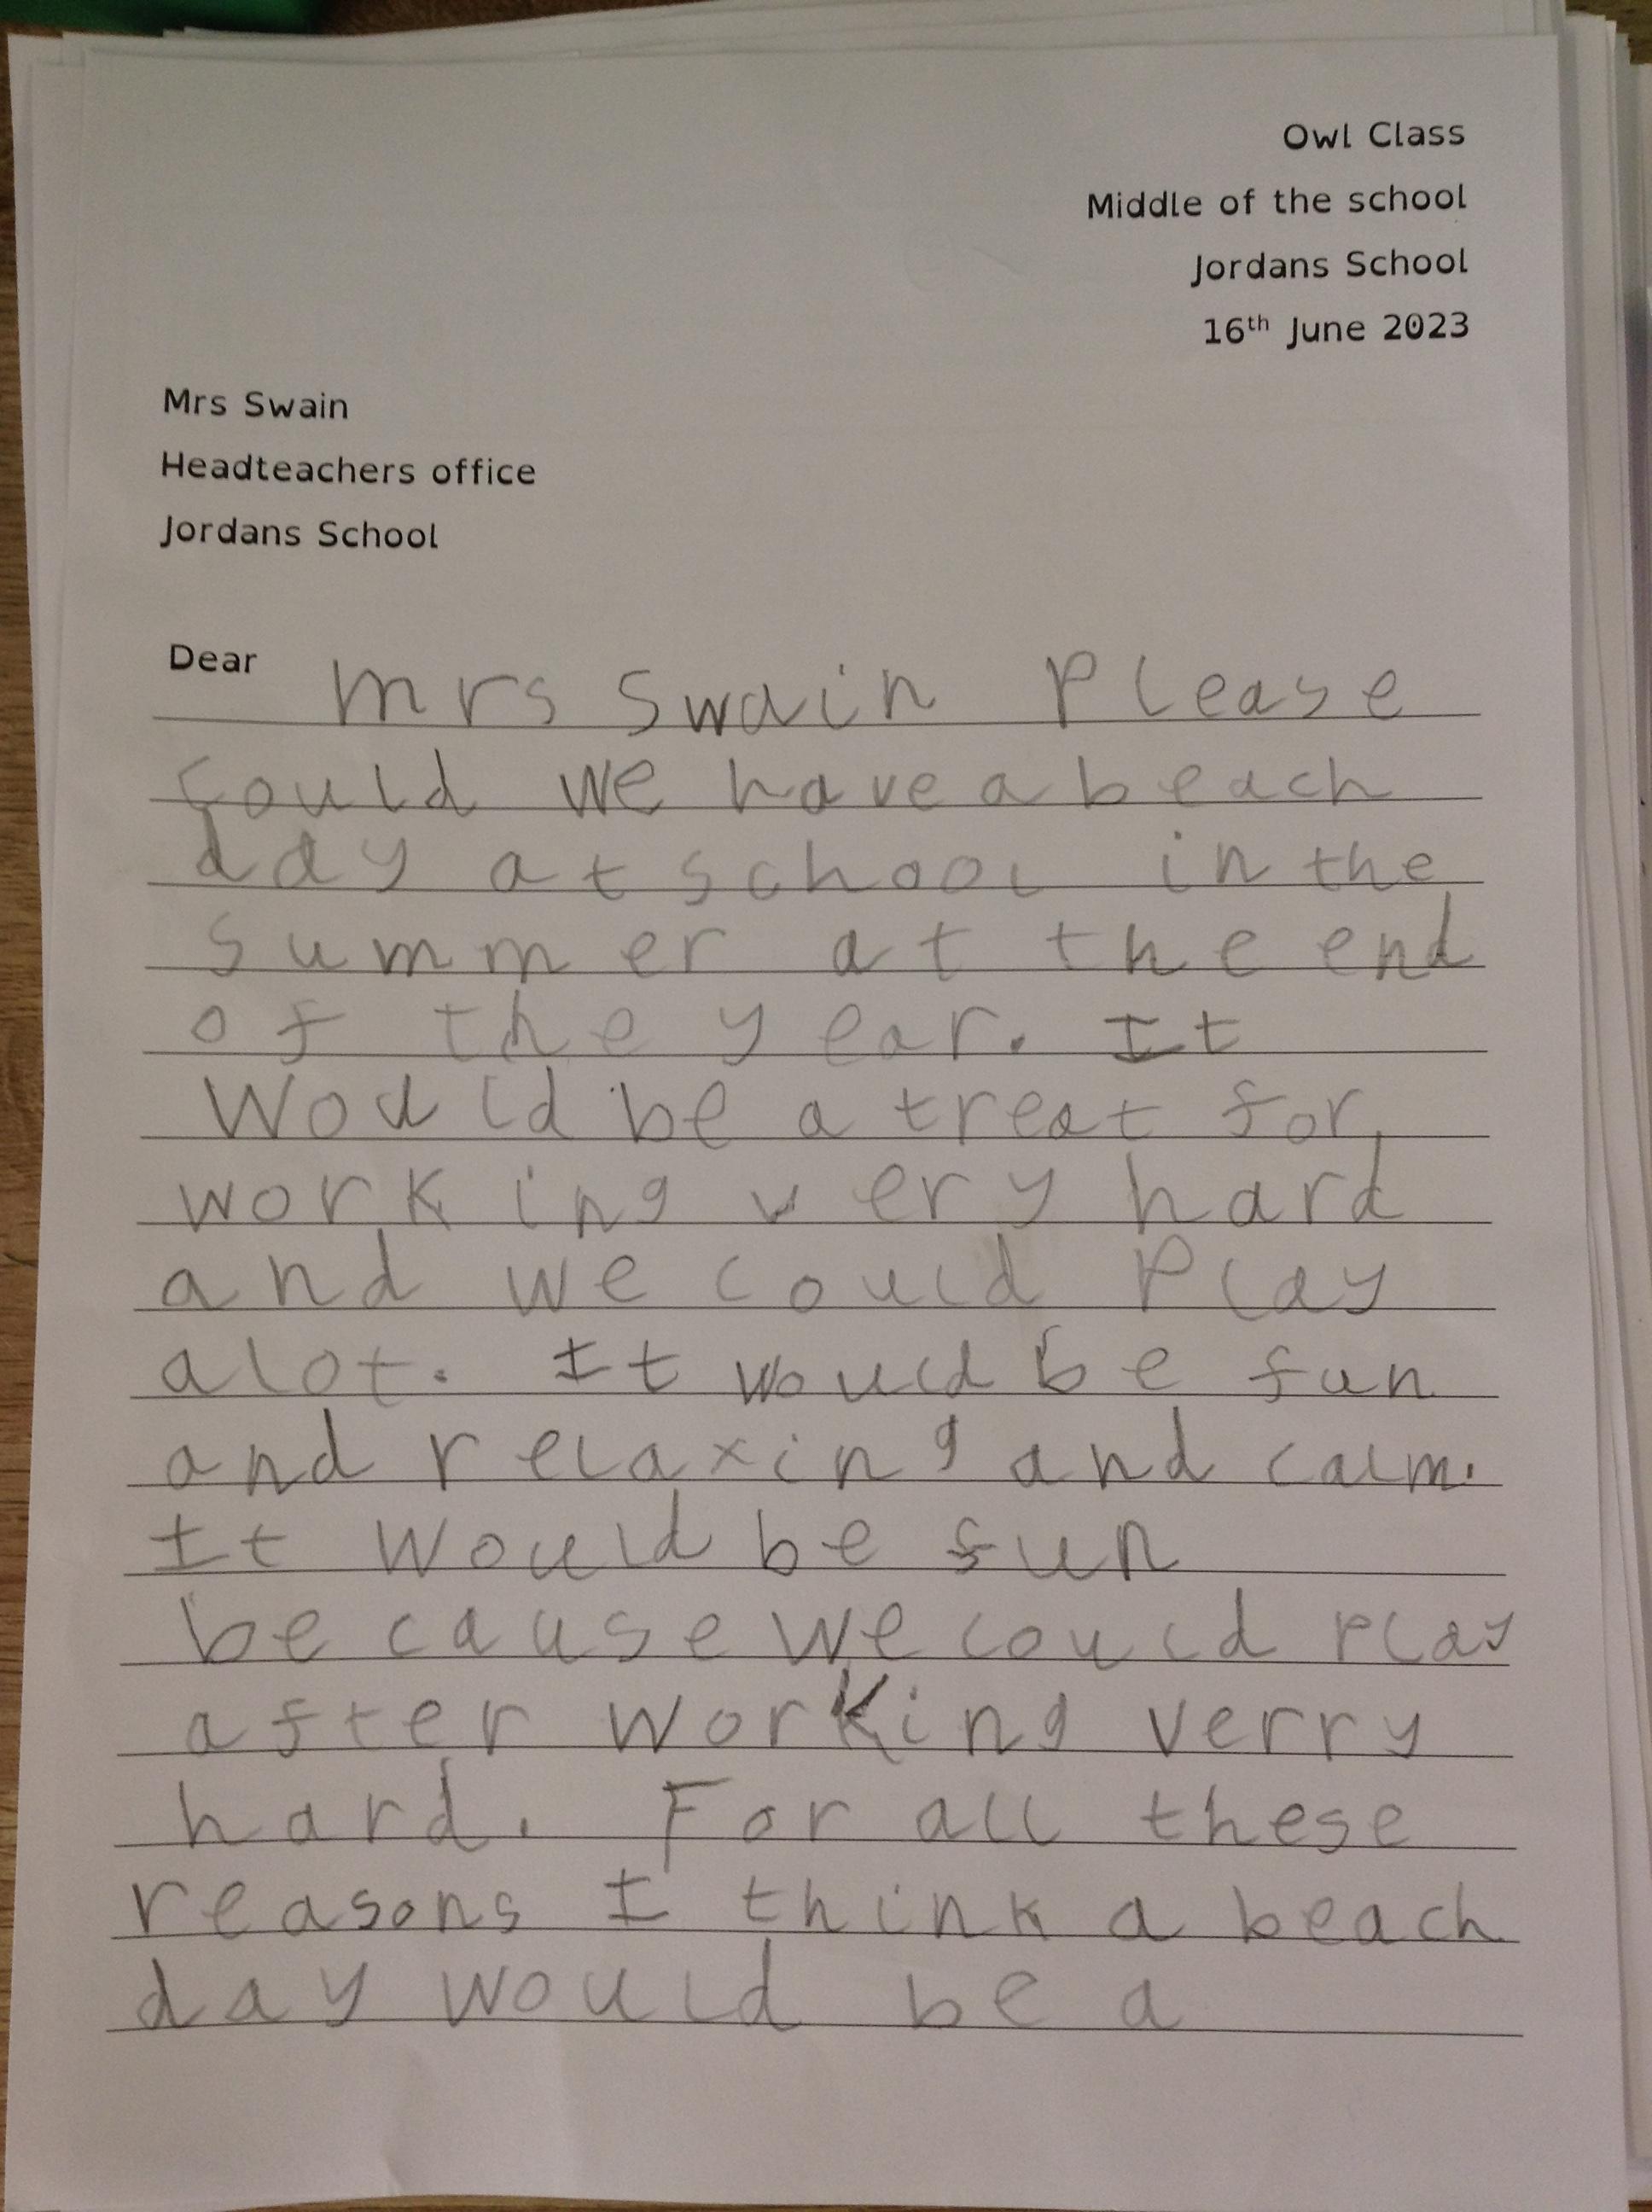 Owl Class
Middle of the school
Jordans School
16th June 2023
Mrs Swain
Headteachers office
Jordans School
Dear mrs swain Please
could we have a beach
day at school in the
summer at the end
of the year. It
would be a treat for
working very hard
and we could Play
alot. It would be fun
and relaxing and calm.
It would be fun
because we could play
after working verry
hard. For all these
reasons I think a beach
day would be a